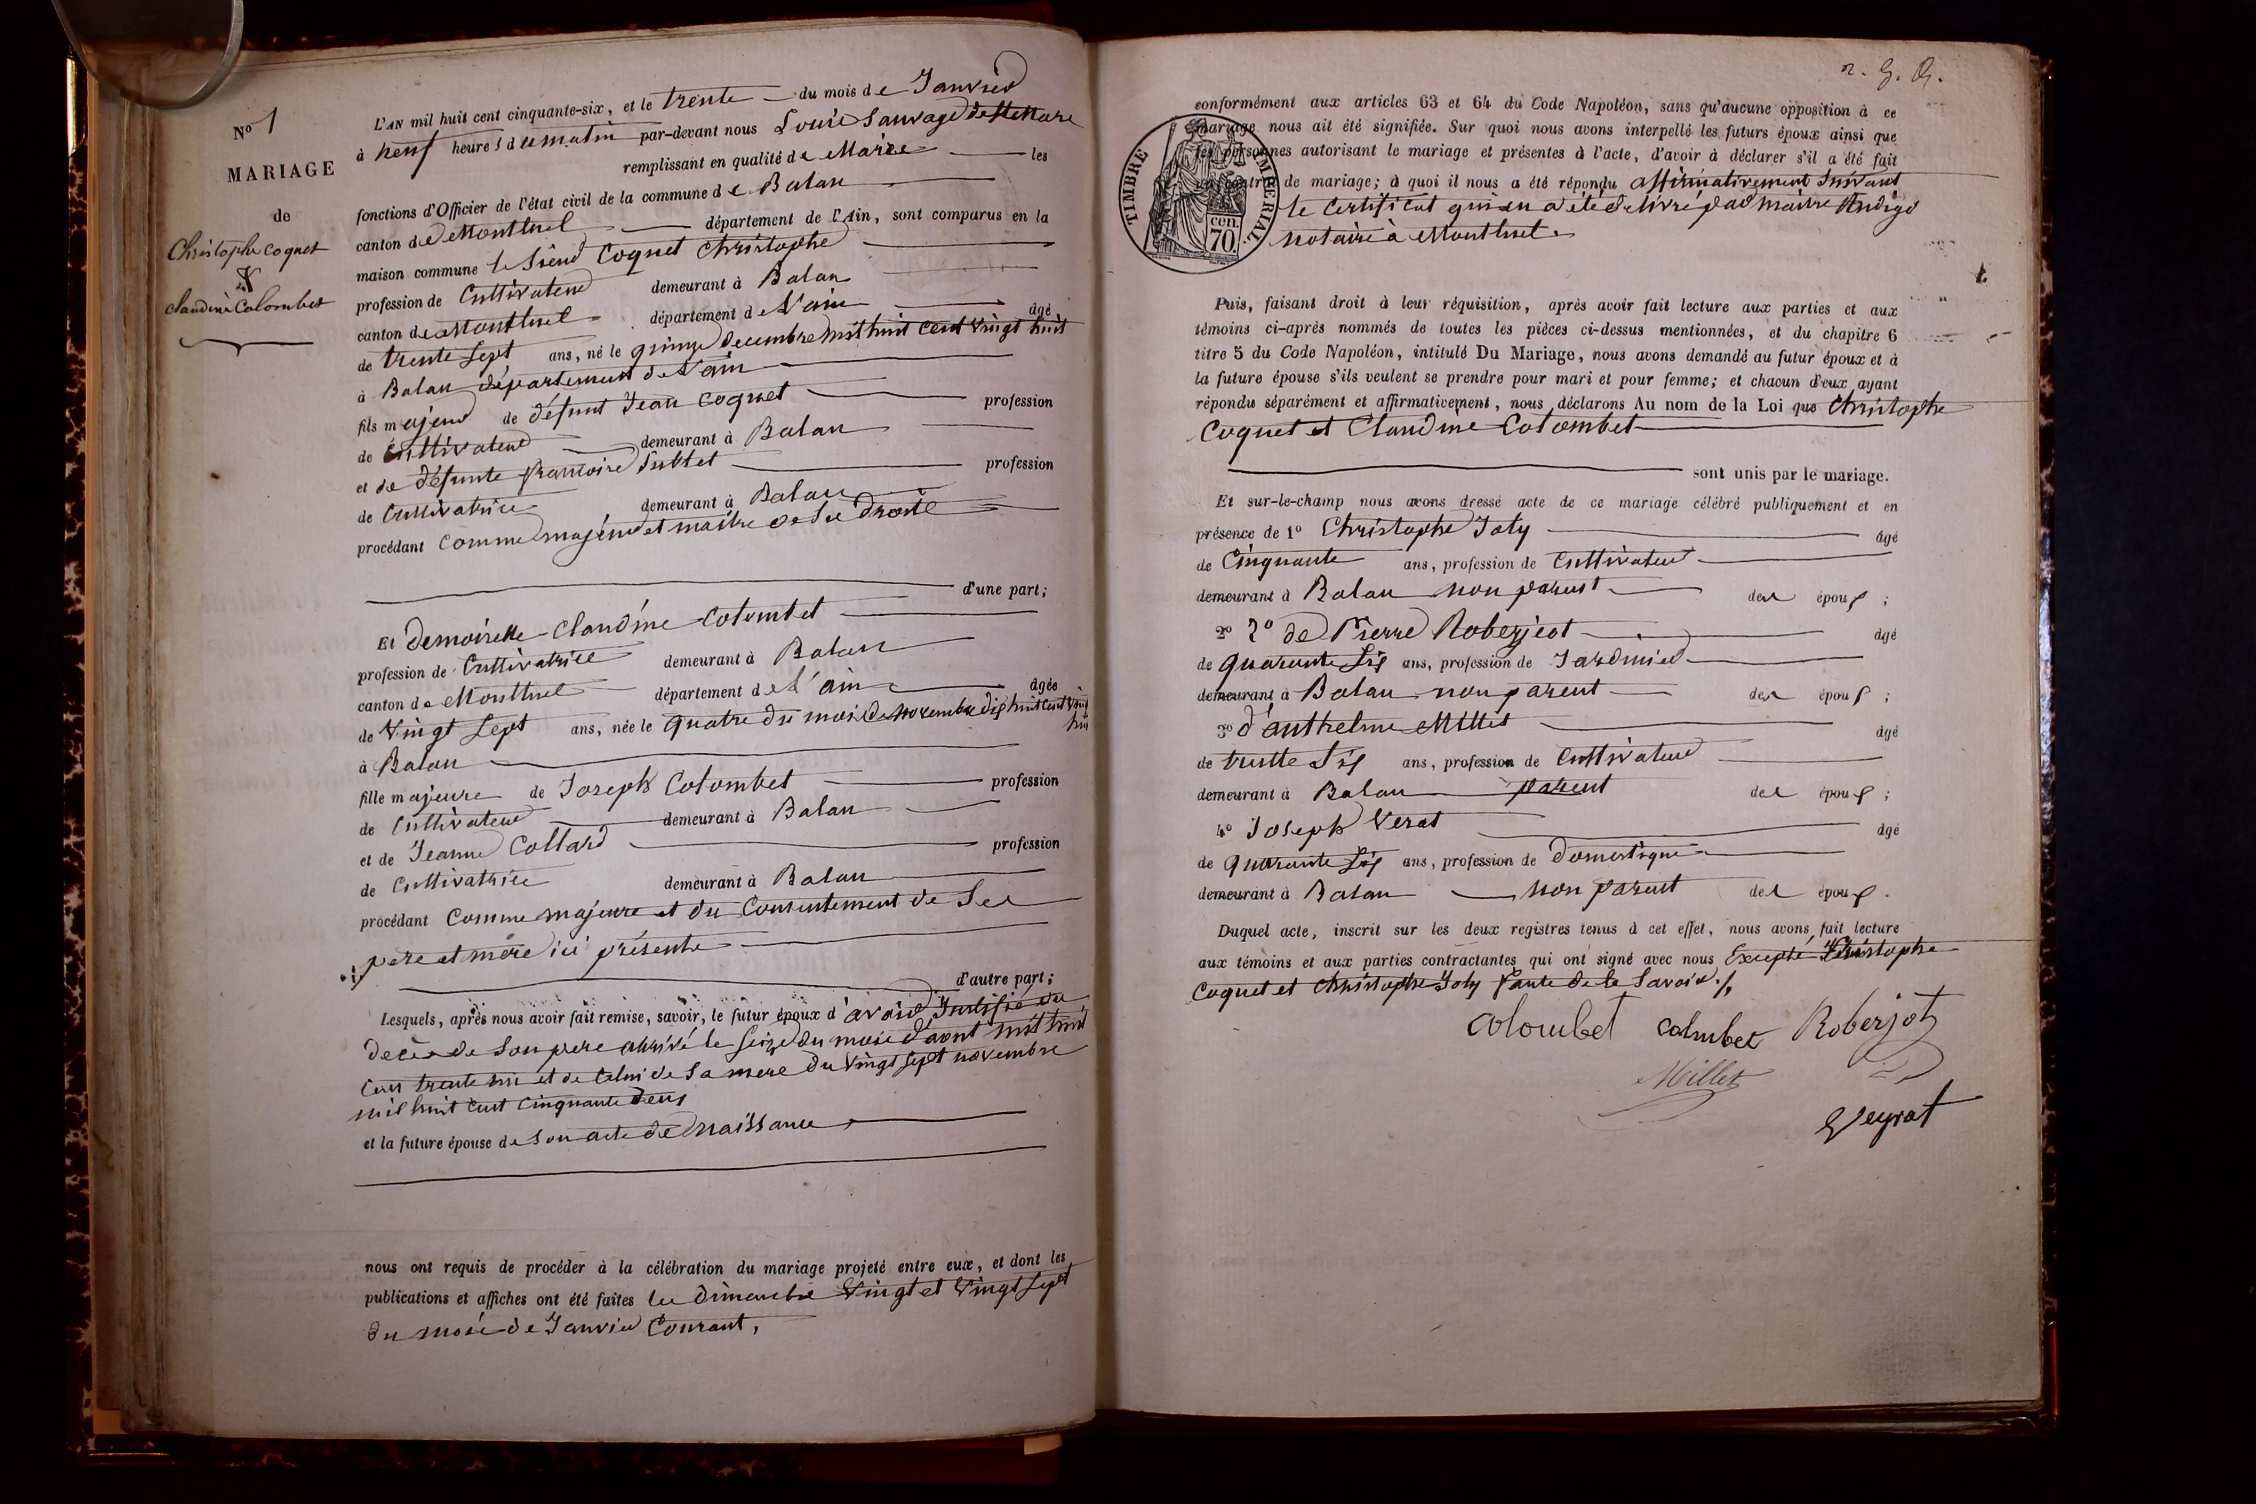 No 1
MARIAGE
de
Christophe Coquet
&
Claudine Colombet
L'AN mil huit cent cinquante-six, et le trente du mois de Janvier
à neuf heures du matin par-devant nous Louis Sauvage de
remplissant en qualité de Maire les
fonctions d'Officier de l'état civil de la commune de Balan
canton de Montluel département de l'Ain, sont comparus en la
maison commune le Sieur Coquet Christophe
profession de Cultivateur demeurant à Balan
canton de Montluel département de l'ain âgé
de trente Sept ans, né le quinze decembre mil huit cent vingt huit
à Balan département de l'ain
fils majeur de défunt Jean Coquet profession
de Cultivateur demeurant à Balan
et de défunte françoise Sublet profession
de Cultivatrice demeurant à Balan
procédant comme majeur et maitre de Ses droits
d'une part;
Et demoiselle Claudine Colombet
profession de Cultivatrice demeurant à Balan
canton de Montluel département de l'ain âgée
de Vingt Sept ans, née le quatre du mois de novembre dix huit cent vingt
huit
à Balan
fille majeure de Joseph Colombet profession
de Cultivateur demeurant à Balan
et de Jeanne Collard profession
de Cultivatrice demeurant à Balan
procédant comme majeure et du Consentement de Ses
pere et mère ici présents
d'autre part;
Lesquels, après nous avoir fait remise, savoir, le futur époux d'avoir Justifié du
decès de Son pere arrivé le Seize du mois d'aout mil huit
cent trente et de Celui de Sa mere du Vingt Sept novembre
mil huit cent cinquante deux
et la future épouse de Son acte de Naissance
nous ont requis de procéder à la célébration du mariage projeté entre eux, et dont les
publications et affiches ont été faites les dimanches Vingt et Vingt Sept
du mois de Janvier Courant,
conformément aux articles 63 et 64 du Code Napoléon, sans qu'aucune opposition à ce
mariage nous ait été signifiée. Sur quoi nous avons interpellé les futurs époux ainsi que
les personnes autorisant le mariage et présentes à l'acte, d'avoir à déclarer s'il a été fait
un contrat de mariage; à quoi il nous a été répondu affirmativement Suivant
le Certificat qui en a été délivré par maitre
notaire à Montluel.
TIMBRE IMPÉRIAL
cen.
70.
Puis, faisant droit à leur réquisition, après avoir fait lecture aux parties et aux
témoins ci-après nommés de toutes les pièces ci-dessus mentionnées, et du chapitre 6
titre 5 du Code Napoléon, intitulé Du Mariage, nous avons demandé au futur époux et à
la future épouse s'ils veulent se prendre pour mari et pour femme; et chacun d'eux ayant
répondu séparément et affirmativement, nous déclarons Au nom de la Loi que Christophe
Coquet et Claudine Colombet
sont unis par le mariage.
Et sur-le-champ nous avons dressé acte de ce mariage célébré publiquement et en
présence de 1º Christophe Joly âgé
de Cinquante ans, profession de Cultivateur
demeurant à Balan non parent des époux;
2º 2º de Pierre Roberjeot âgé
de quarante Six ans, profession de Jardinier
demeurant à Balan non parent des époux;
3º d'anthelme Millet âgé
de trente Six ans, profession de Cultivateur
demeurant à Balan parent des époux;
4º Joseph Verat âgé
de quarante Six ans, profession de Domestique
demeurant à Balan non parent des époux.
Duquel acte, inscrit sur les deux registres tenus à cet effet, nous avons fait lecture
aux témoins et aux parties contractantes qui ont signé avec nous Excepté Christophe
Coquet et Christophe Joly faute de le Savoir./.
Colombet Colmbet Roberjot
Millet
Veyrat